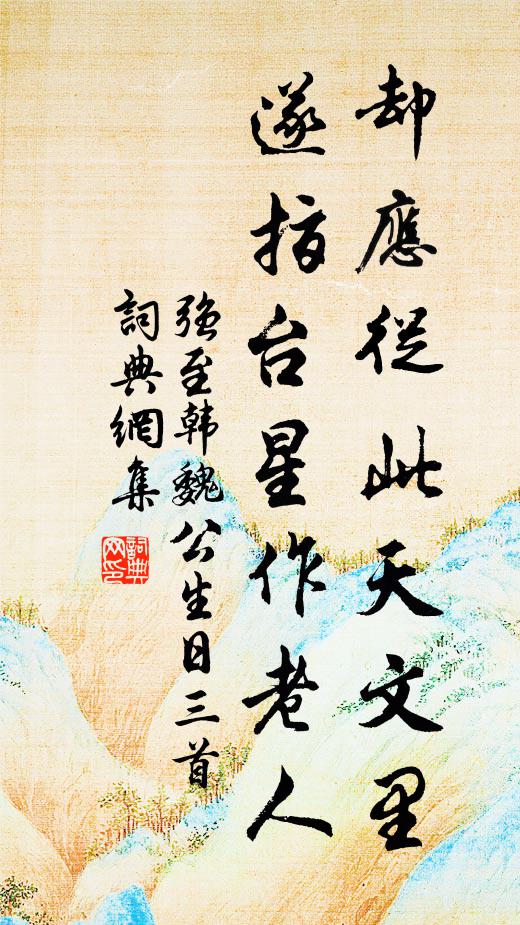 却應從此天文里
遂指台星作老人
强至韩魏公生日三首
詞典網集
詞典网印